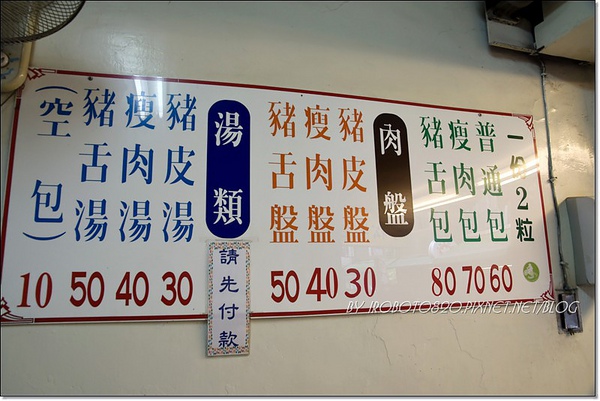 一份2粒
普通包 60
瘦肉包 70
豬舌包 80
肉盤
豬皮盤 30
瘦肉盤 40
豬舌盤 50
湯類
豬皮湯 30
瘦肉湯 40
豬舌湯 50
(空包) 10
請先付款
BY ROBOTO890.PIXNET.NET/BLOG